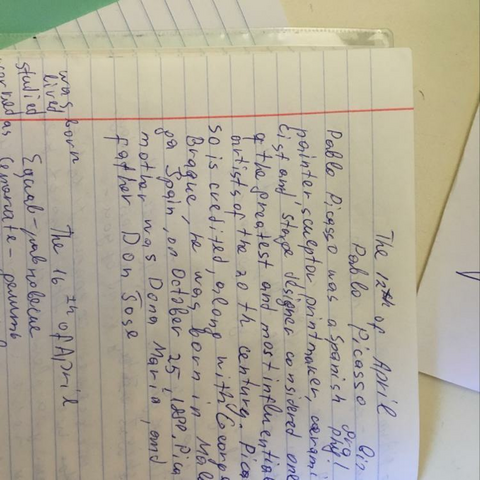 The 12th of April
Pablo Picasso
Pablo Picasso was a Spanish
painter, sculptor printmaker, cerami
cist and stage designer considered one
of the greatest and most influential
artists of the 20th century. Pica
so is credited, along with George
Braque, he was born in Mala
ga Spain, on October 25, Pica
mother was Dona Maria, and
father Don Jose
was born
lived The 16th of April
studied Equal - равновесие
worked as